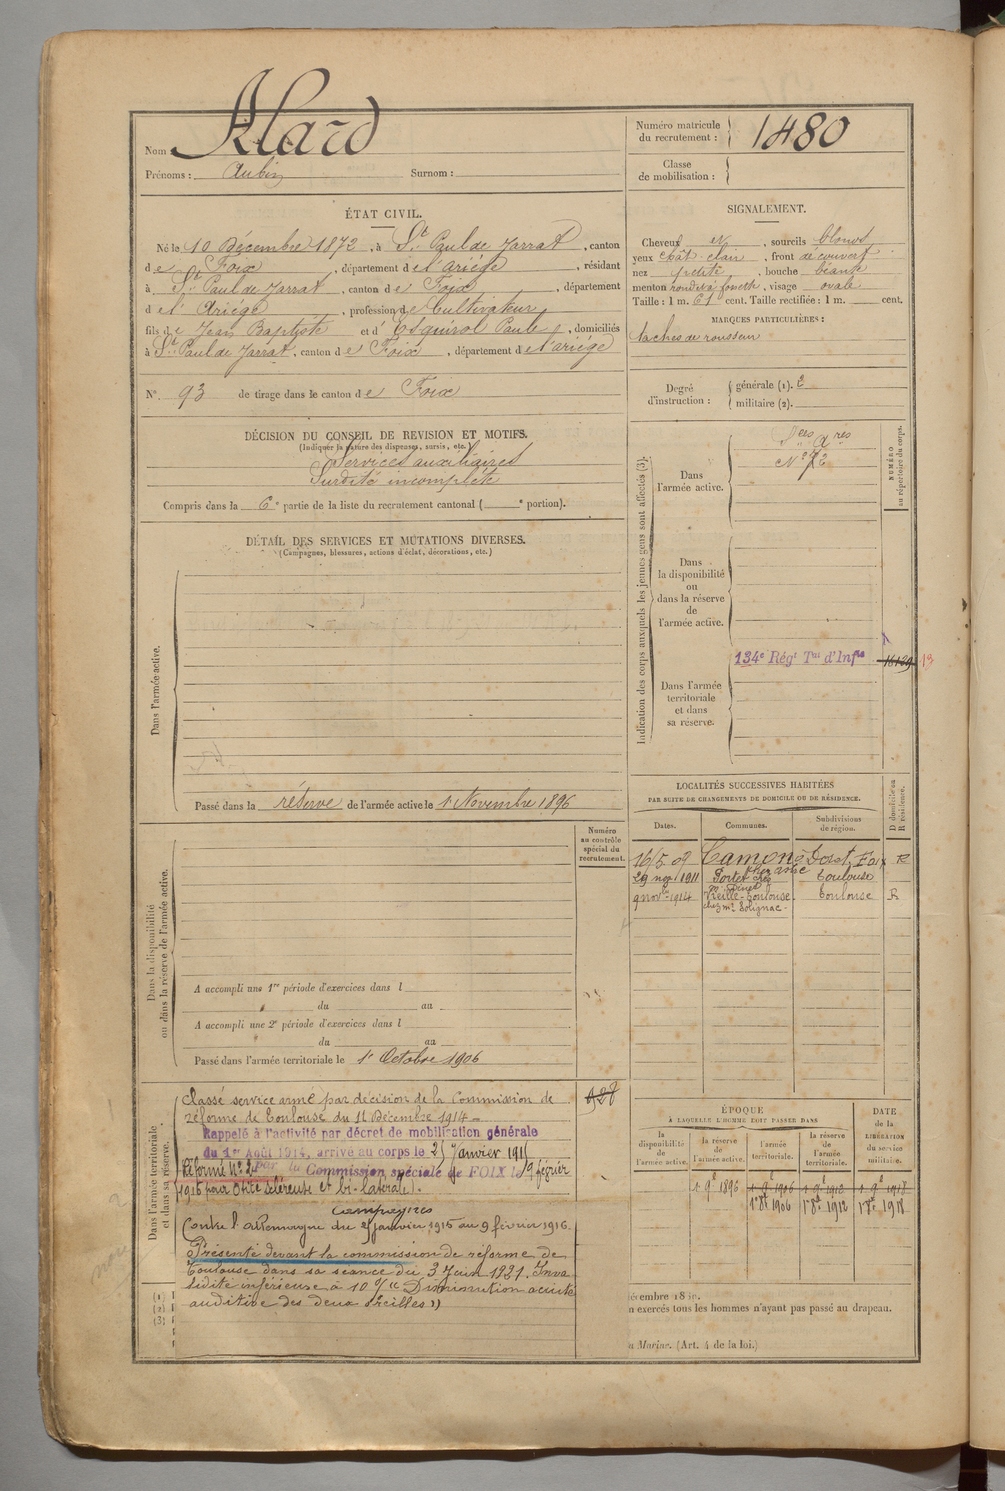 Nom Alard
Prénoms : Aubin Surnom :
Numéro matricule du recrutement : 1480
Classe de mobilisation :
ÉTAT CIVIL.
Né le 10 Décembre 1872, à St Paul de Jarrat, canton
de Foix, département de l'Ariège, résidant
à St Paul de Jarrat, canton de Foix, département
de l'Ariège, profession de Cultivateur
fils de Jean Baptiste et d'Esquirol Paule, domiciliés
à St Paul de Jarrat, canton de Foix, département de l'ariège
N°. 93 de tirage dans le canton de Foix
SIGNALEMENT.
Cheveux et, sourcils blonds
yeux chât. clair, front découvert
nez petit, bouche béante
menton rond à fossette, visage ovale
Taille : 1 m. 61 cent. Taille rectifiée : 1 m. cent.
MARQUES PARTICULIÈRES :
taches de rousseur
Degré d'instruction : générale (1). 2
militaire (2).
DÉCISION DU CONSEIL DE REVISION ET MOTIFS.
(Indiquer la nature des dispenses, sursis, etc.)
Services auxiliaires
Surdité incomplète
Compris dans la 6e partie de la liste du recrutement cantonal ( e portion).
DÉTAIL DES SERVICES ET MUTATIONS DIVERSES.
(Campagnes, blessures, actions d'éclat, décorations, etc.)
Dans l'armée active.
Passé dans la réserve de l'armée active le 1 Novembre 1896
Indication des corps auxquels les jeunes gens sont affectés (3).
NUMÉRO au répertoire du corps.
Dans l'armée active.
Sces Ares
N° 72
Dans la disponibilité ou dans la réserve de l'armée active.
134e Régt Tal d'Infie 16129 13
Dans l'armée territoriale et dans sa réserve.
LOCALITÉS SUCCESSIVES HABITÉES
PAR SUITE DE CHANGEMENTS DE DOMICILE OU DE RÉSIDENCE.
Dates. Communes. Subdivisions de région. D domicile ou R résidence.
16/5 09 Camon Foix R
29 1911 Portet chez Toulouse
9 nov 1914 Vieille-Toulouse Toulouse R
chez Mr Solignac.
Numéro au contrôle spécial du recrutement.
Dans la disponibilité ou dans la réserve de l'armée active.
A accompli une 1re période d'exercices dans l
du au
A accompli une 2e période d'exercices dans l
du au
Passé dans l'armée territoriale le 1er Octobre 1906
Dans l'armée territoriale et dans sa réserve.
Classé service armé par décision de la Commission de 928
réforme de Toulouse du 11 Décembre 1914
Rappelé à l'activité par décret de mobilisation générale
du 1er Août 1914, arrivé au corps le 25 Janvier 1915
Réformé N° 2 par la Commission spéciale de FOIX le 9 février
1916 pour Otite scléreuse et bi-latérale).
Campagnes
Contre l'Allemagne du 25 janvier 1915 au 9 février 1916.
Présenté devant la commission de réforme de
Toulouse dans sa séance du 3 Juin 1921. Inva
lidité inférieure à 10 % (« Diminution acuité
auditive des deux oreilles »)
ÉPOQUE
À LAQUELLE L'HOMME DOIT PASSER DANS
la disponibilité de l'armée active. la réserve de l'armée active. l'armée territoriale. la réserve de l'armée territoriale.
DATE de la LIBÉRATION du service militaire.
1 9e 1896 1 9e 1906 1 9e 1912 1 9e 1918
1er 8e 1906 1er 8e 1912 1er 8e 1918
(1)
(2)
(3)
écembre 18
n exercés tous les hommes n'ayant pas passé au drapeau.
a Marine. (Art. 4 de la loi.)